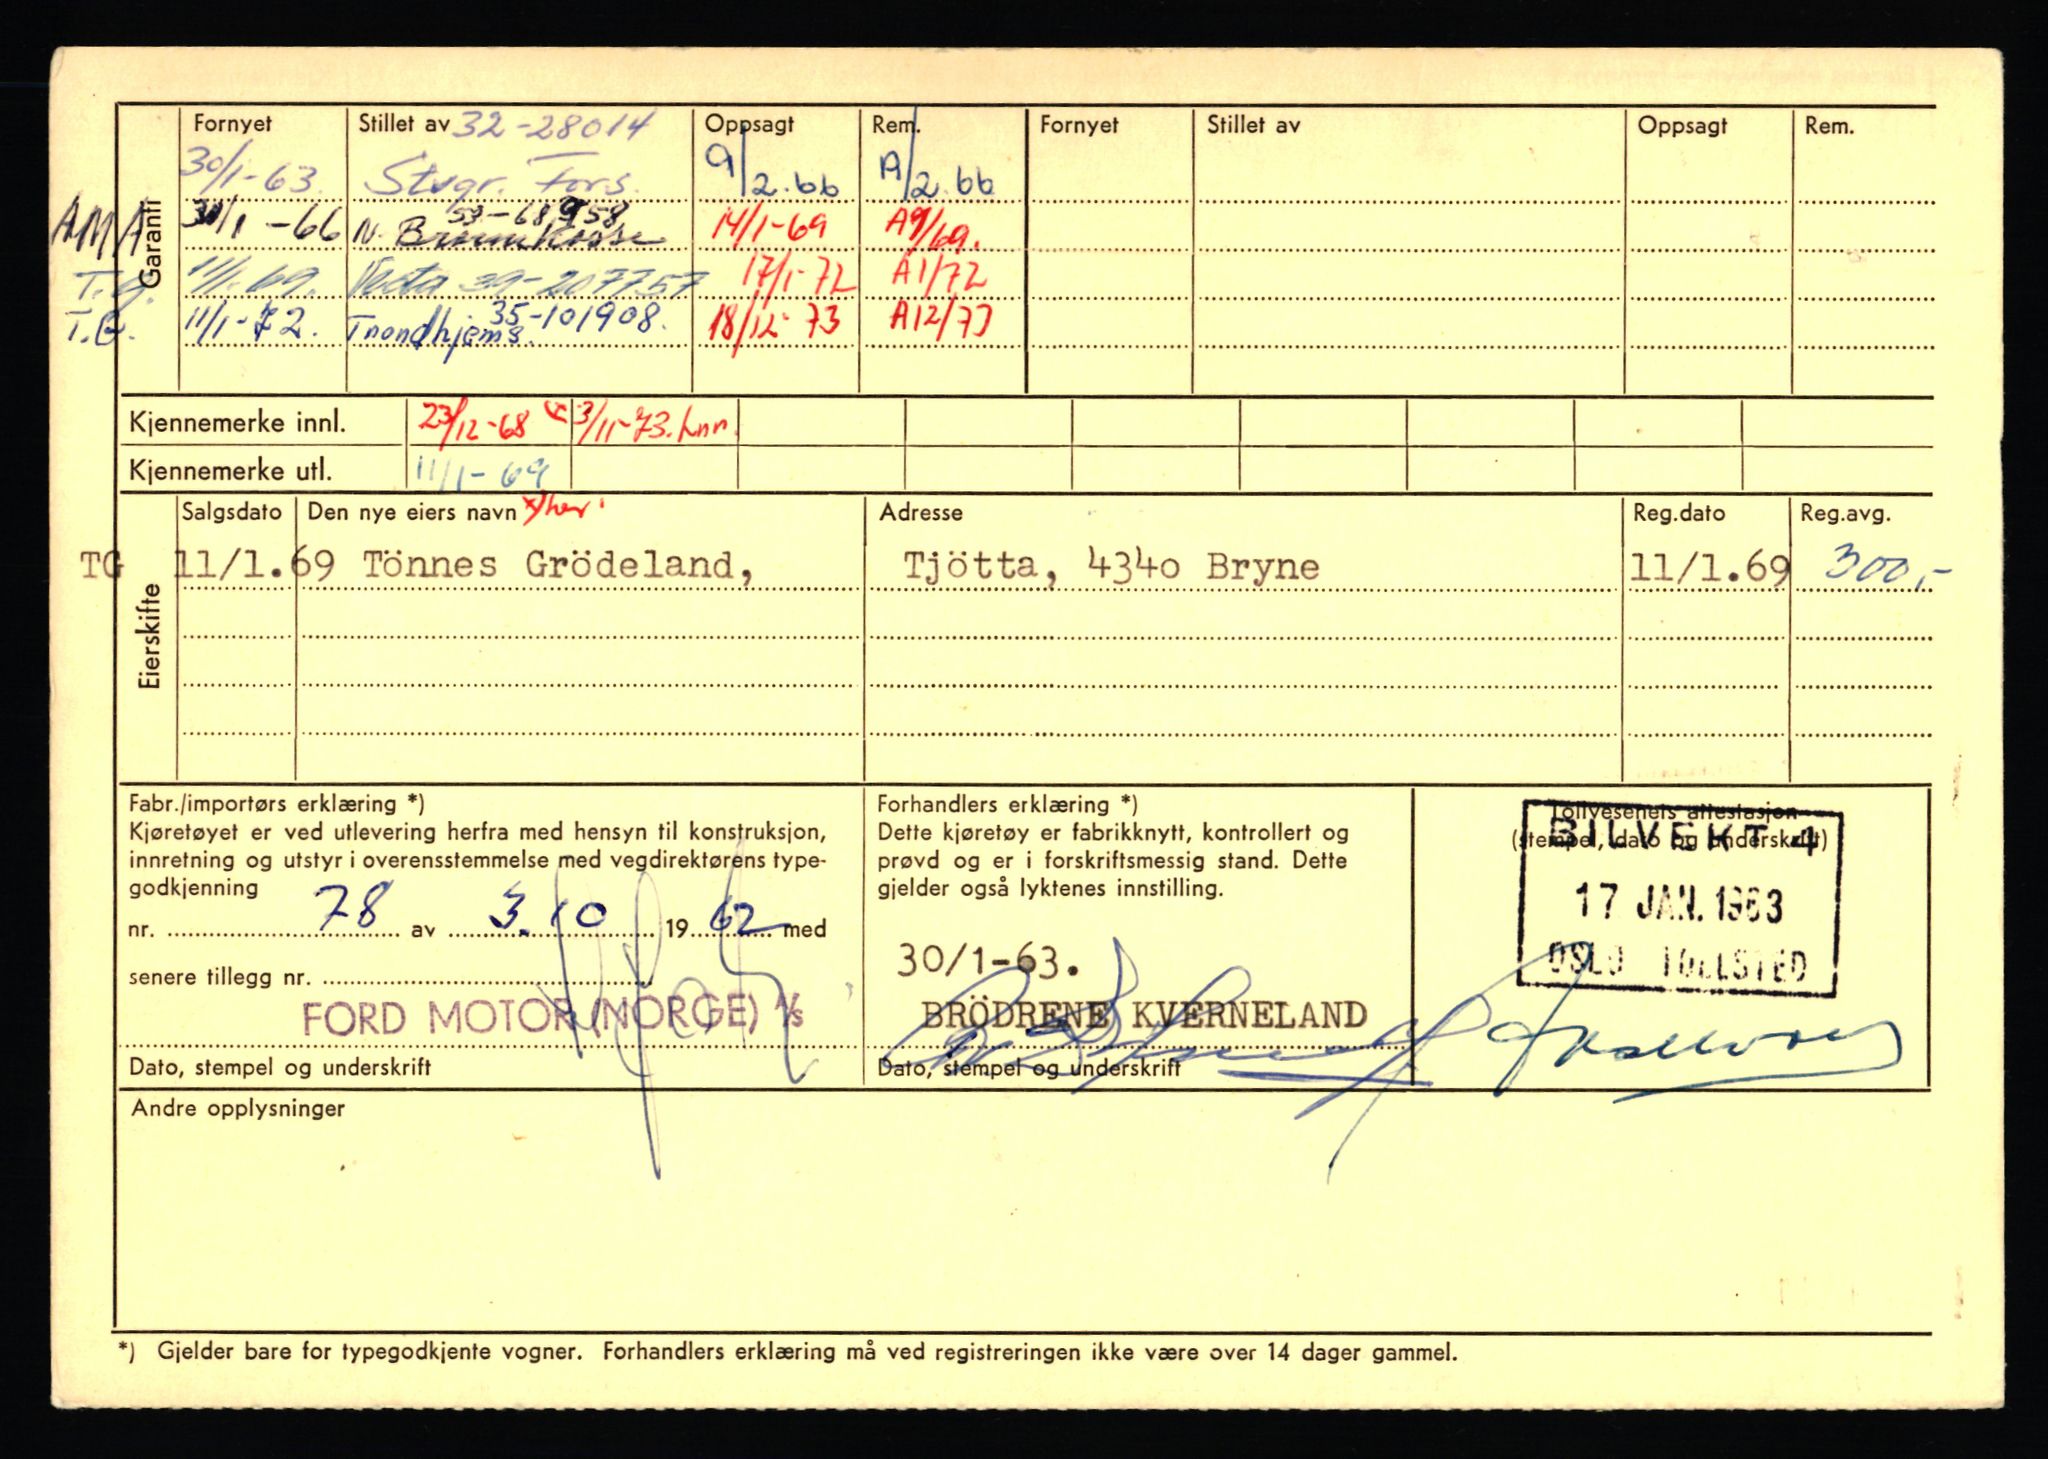 Fornyet Stillet av 32-28014 Oppsagt Rem. Fornyet Stillet av Oppsagt Rem.
Garanti
30/1-63. Stvgr. Fors. 9/2.66 A/2.66
53-68958
AMA 30/1-66 N. Brannkasse 14/1-69 A9/69.
T.G. 11/1.69. Vesta 39-207757 17/1-72 A1/72
T.G. 11/1-72. Trondhjems. 35-101908. 18/12-73 A12/73
Kjennemerke innl. 23/12-68 3/11-73. Lnn.
Kjennemerke utl. 11/1-69
Eierskifte
Salgsdato Den nye eiers navn Adresse Reg.dato Reg.avg.
TG 11/1.69 Tönnes Grödeland, Tjötta, 4340 Bryne 11/1.69 300,-
Fabr./importørs erklæring *)
Kjøretøyet er ved utlevering herfra med hensyn til konstruksjon,
innretning og utstyr i overensstemmelse med vegdirektørens type-
godkjenning
nr. 78 av 3.10 1962 med
senere tillegg nr.
FORD MOTOR (NORGE) A/S
Dato, stempel og underskrift
Forhandlers erklæring *)
Dette kjøretøy er fabrikknytt, kontrollert og
prøvd og er i forskriftsmessig stand. Dette
gjelder også lyktenes innstilling.
30/1-63.
BRÖDRENE KVERNELAND
Dato, stempel og underskrift
Tollvesenets attestasjon
(stempel, dato og underskrift)
BILVEKT 4
17 JAN. 1963
OSLO TOLLSTED
Andre opplysninger
*) Gjelder bare for typegodkjente vogner. Forhandlers erklæring må ved registreringen ikke være over 14 dager gammel.